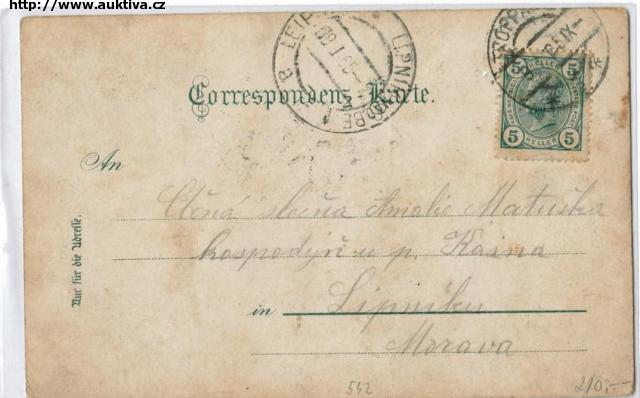 http://www.auktiva.cz
Correspondenz-Karte.
An
Ctěná slečna Amalie Matuška
hospodyň u p. Kasna
in Lipníku
Morava
Nur für die Adresse.
LEIP LIPNÍK
TROPPAU
5 5
HELLER
5 HELLER 5
542
210,-